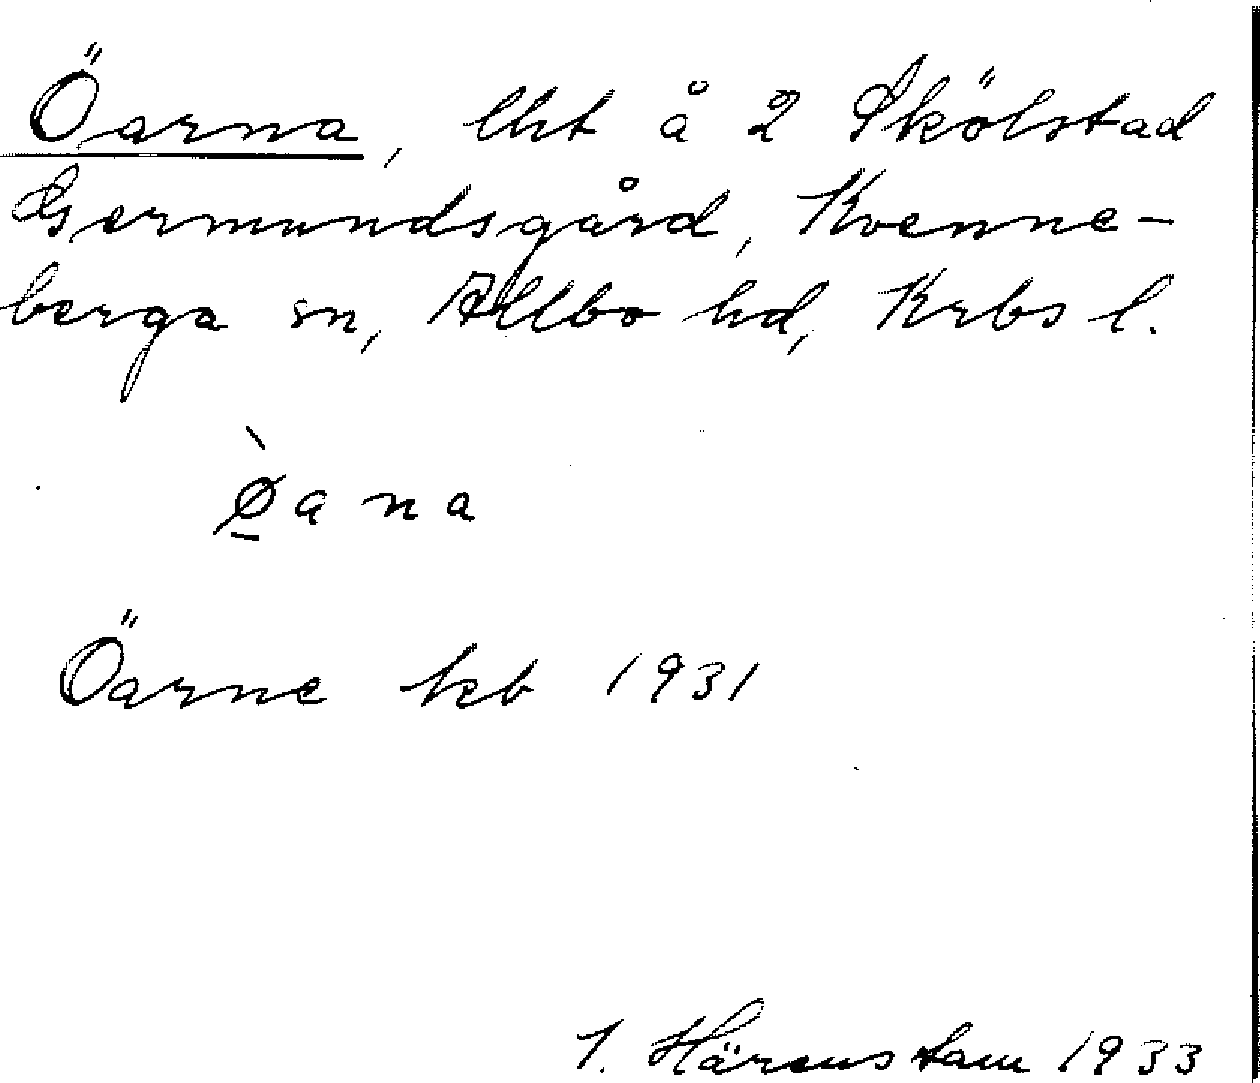 Öarna, lht å 2 Skölstad
Germundsgård, Kvenne-
berga sn, Allbo hd, Krbs l.
Ø̱̀ana
Öarne kb 1931
I. Härenstam 1933